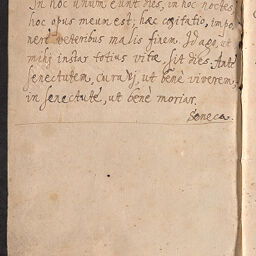 In hoc unum eunt dies, in hoc noctes
hoc opus meum est; hæc cogitatio, impo
nere veteribus malis finem. Id ago, ut
mihj instar totius vitæ, sit dies. Ante
senectutem, curavj, ut benè viverem,
in senectute, ut benè moriar.
Seneca.